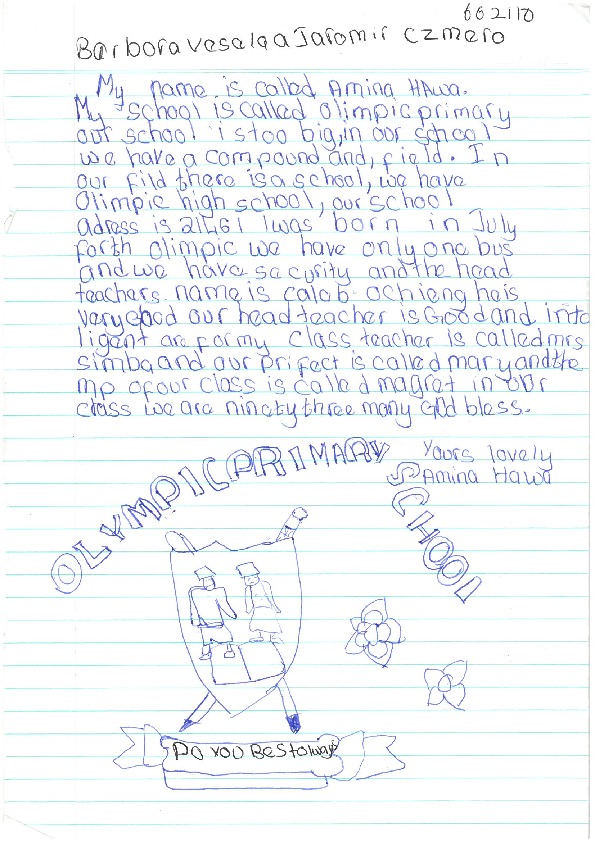 662110
Barbora Vesela a Jaromir Czmero
My name is called Amina HAwa.
My school is called olimpic primary
our school is too big, in our school
we have a compound and, field. In
our fild there is a school, we have
Olimpic high school, our school
adress is 21461 I was born in July
forth olimpic we have only one bus
and we have security and the head
teachers name is calob ochieng he is
very good our head teacher is Good and into
ligent are for my class teacher is called mrs
simba and our prifect is called mary and the
mp of our class is called magret in our
class we are ninety three many God bless.
Yours lovely
Amina Hawa
OLYMPIC PRIMARY SCHOOL
DO YOU BEST olways